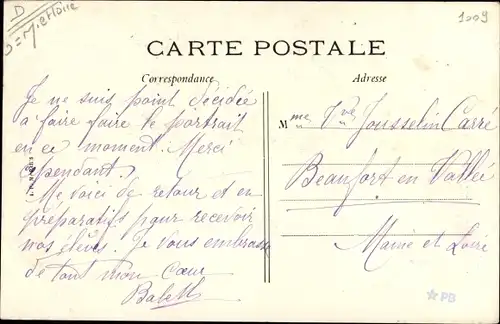 D
D = M. et Loire
1009
CARTE POSTALE
Correspondance
Adresse
Je ne suis point décidée
à faire faire le portrait
en ce moment. Merci
cependant.
Me voici de retour et en
préparatifs pour recevoir
nos élèves. Je vous embrasse
de tout mon cœur
Mme Vve Jousselin Carré
Beaufort en Vallée
Maine et Loire
PB